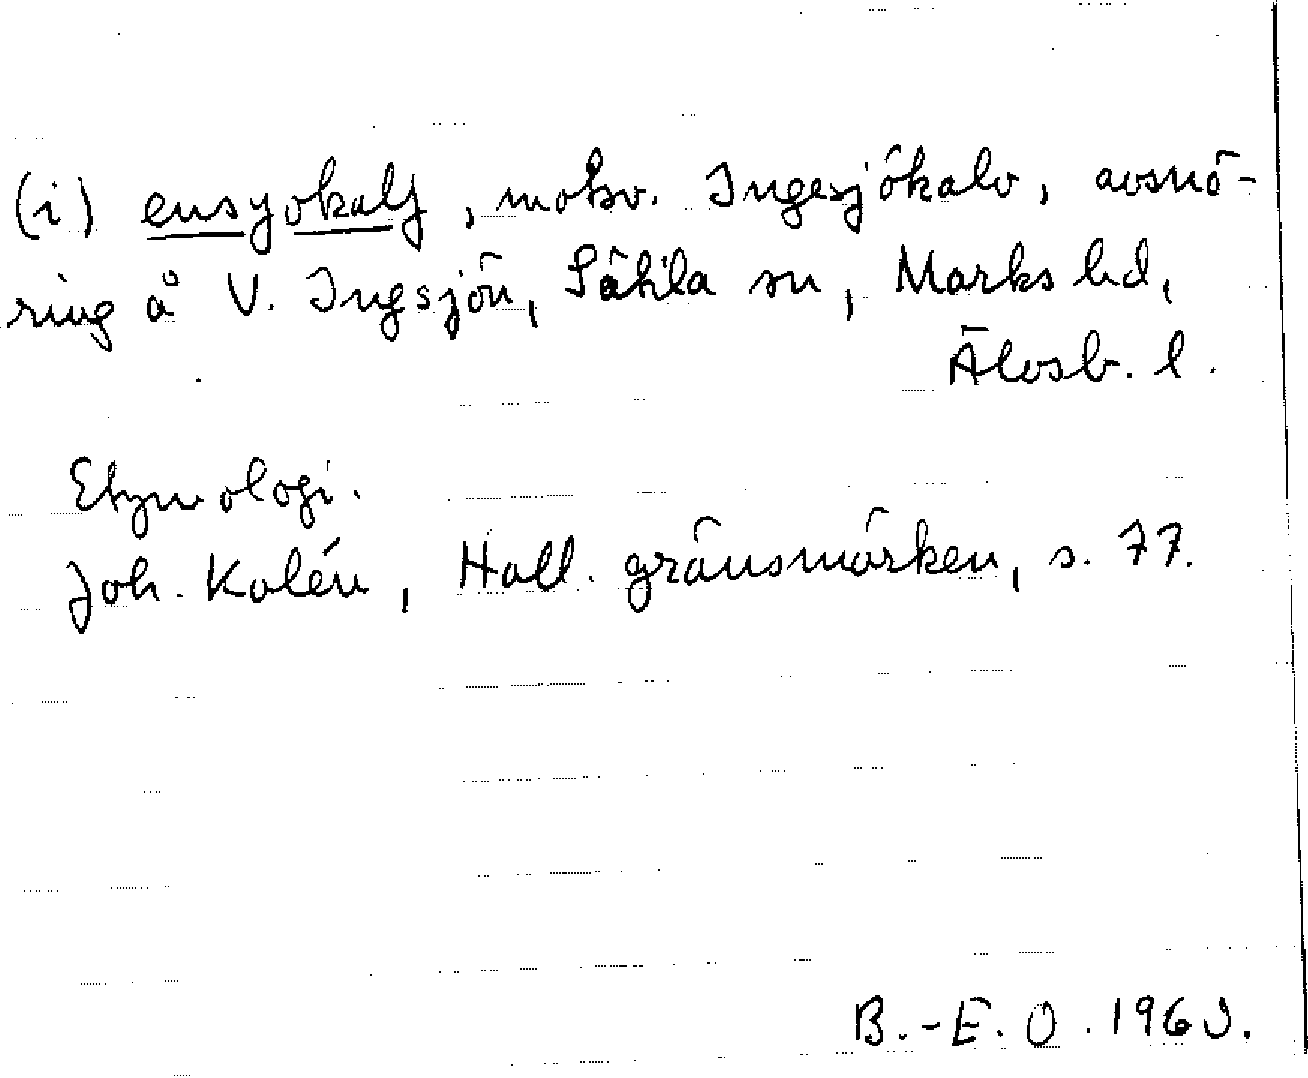 (i) ensyokalf, motsv. Ingesjökalv, avsnö-
ring å V. Ingsjön, Sätila sn, Marks hd,
Älvsb. l.
Etymologi.
Joh. Kalén, Hall. gränsmärken, s. 77.
B.-E. O. 196